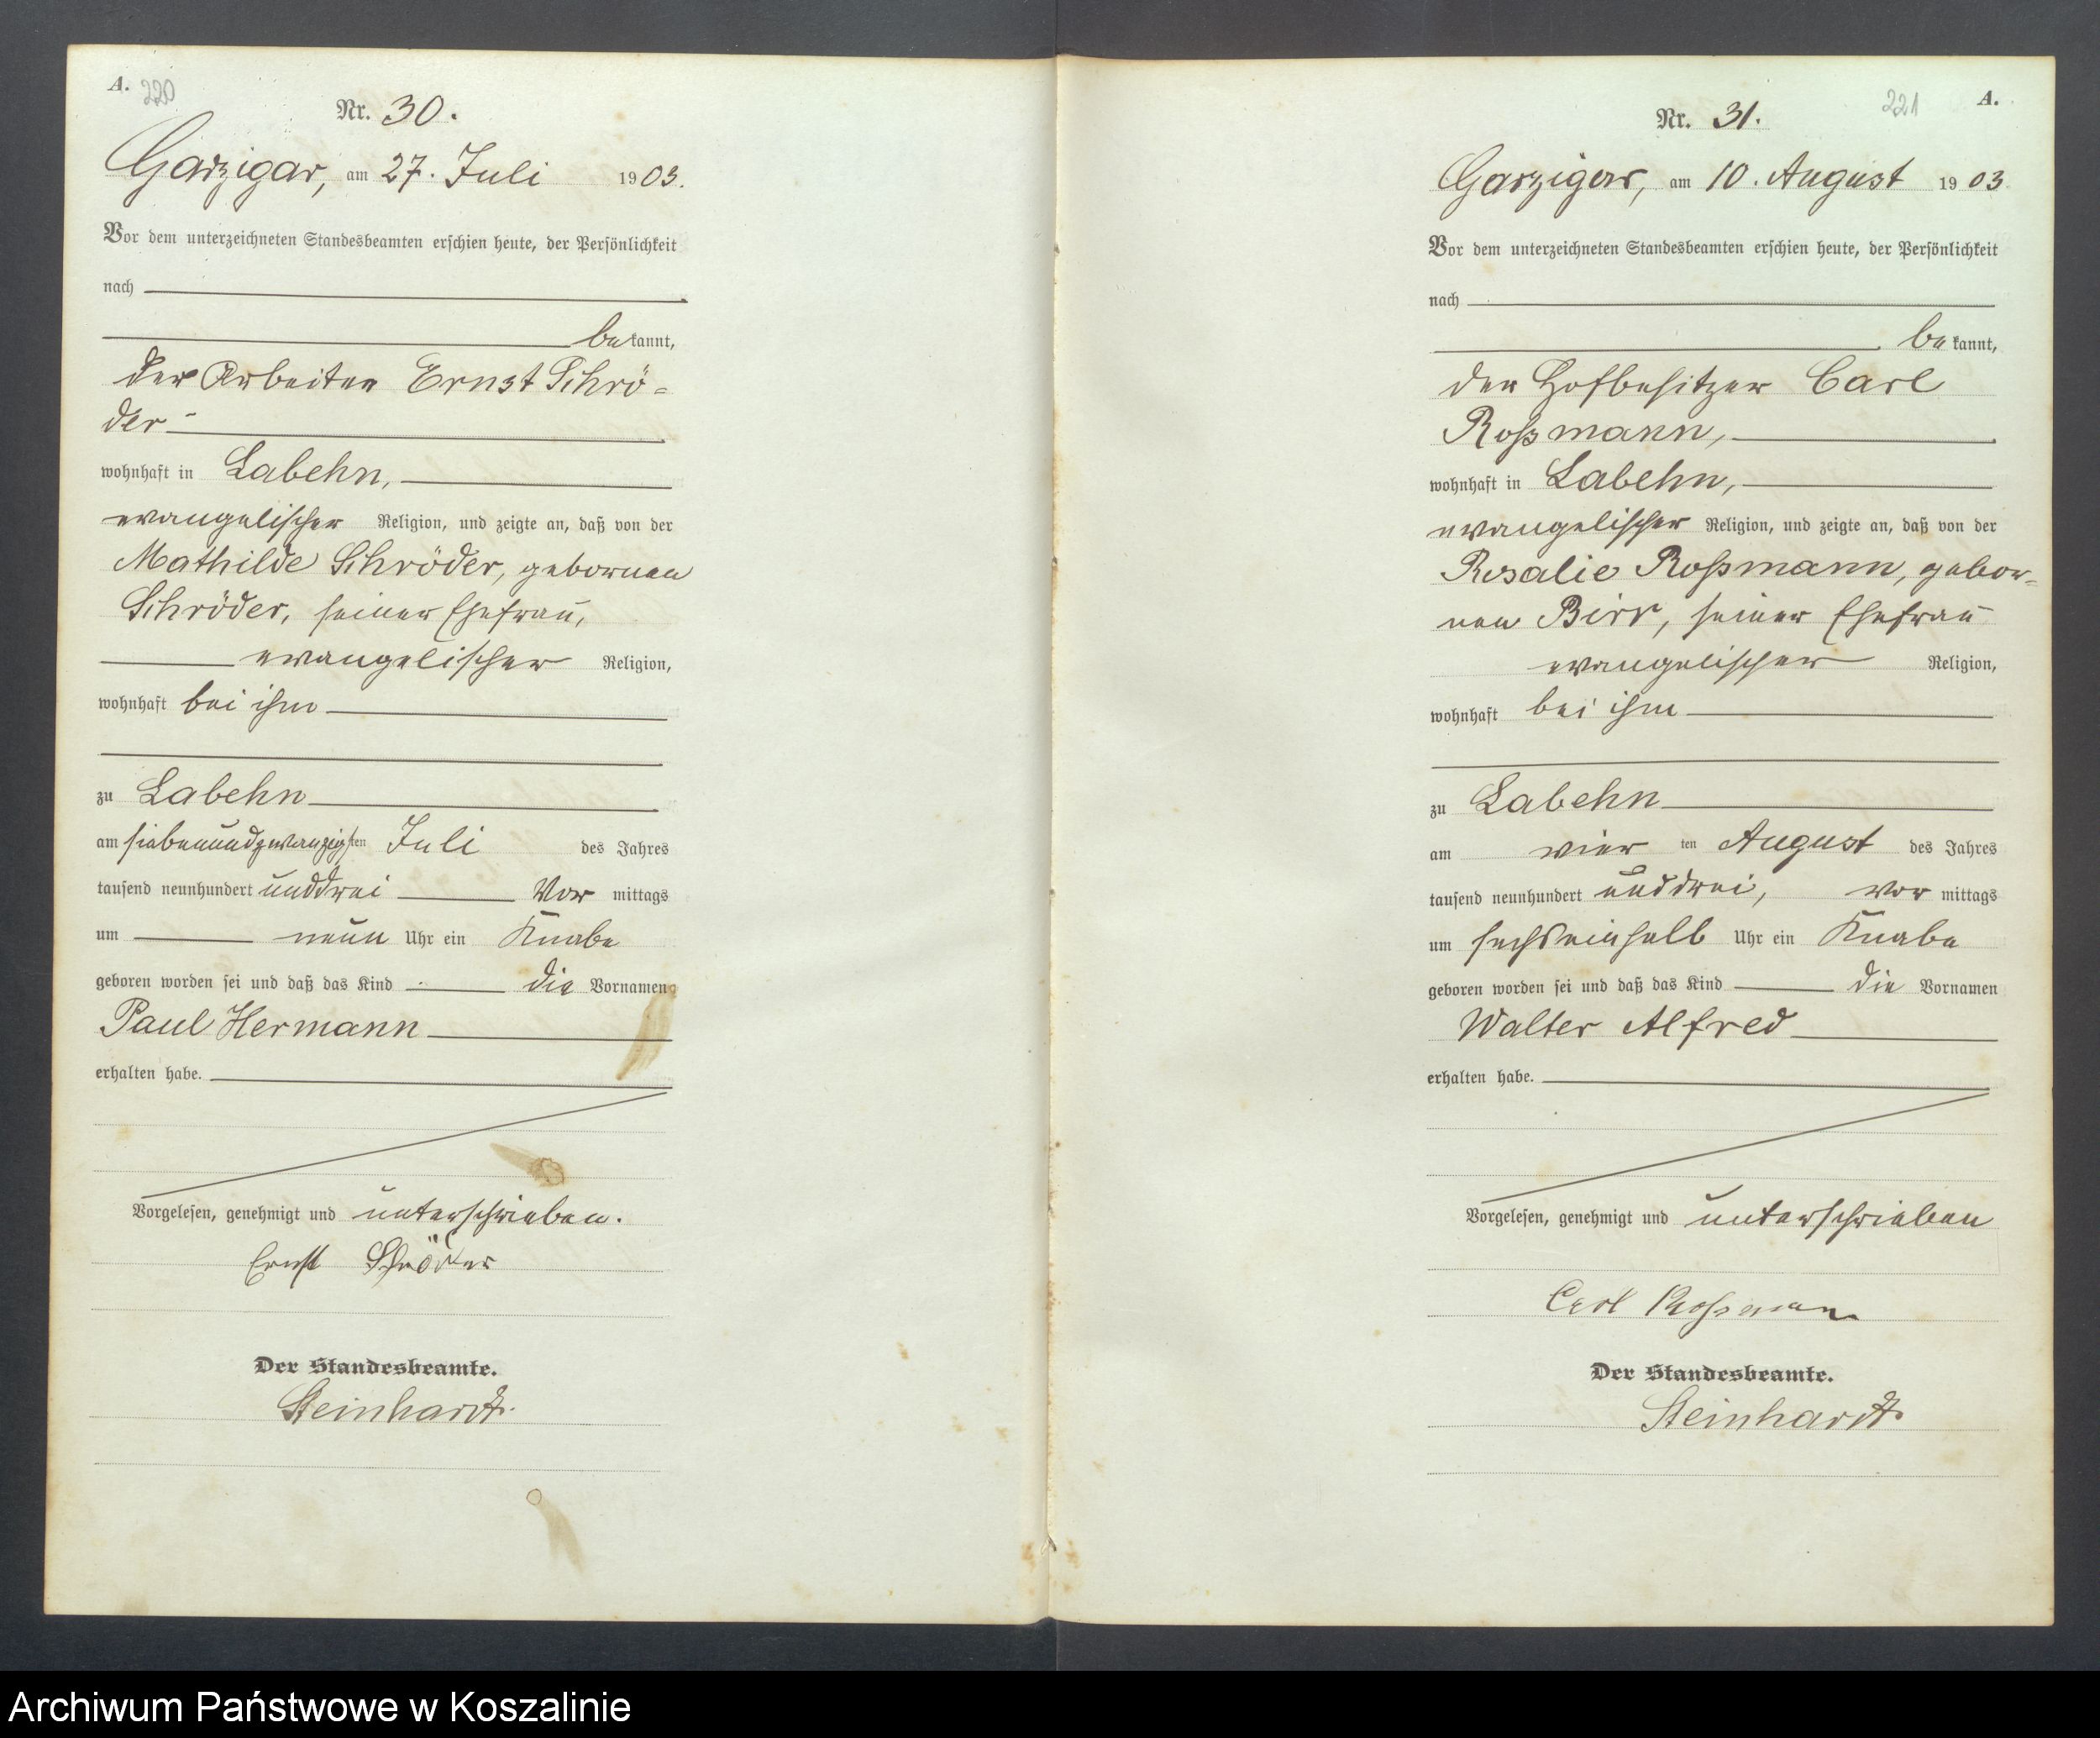 A. 220
Nr. 30.
Garzigar, am 27. Juli 1903.
Vor dem unterzeichneten Standesbeamten erschien heute, der Persönlichkeit
nach
bekannt,
der Arbeiter Ernst Schrö-
der
wohnhaft in Labehn,
evangelischer Religion, und zeigte an, daß von der
Mathilde Schröder, gebornen
Schröder, seiner Ehefrau,
evangelischer Religion,
wohnhaft bei ihm
zu Labehn
am siebenundzwanzigsten Juli des Jahres
tausend neunhundert unddrei Vor mittags
um neun Uhr ein Knabe
geboren worden sei und daß das Kind die Vornamen
Paul Hermann
erhalten habe.
Vorgelesen, genehmigt und unterschrieben.
Ernst Schröder
Der Standesbeamte.
Steinhardt.
221 A.
Nr. 31.
Garzigar, am 10. August 1903
Vor dem unterzeichneten Standesbeamten erschien heute, der Persönlichkeit
nach
bekannt,
der Hofbesitzer Carl
Roßmann,
wohnhaft in Labehn,
evangelischer Religion, und zeigte an, daß von der
Rosalie Roßmann, gebor-
nen Birr, seiner Ehefrau
evangelischer Religion,
wohnhaft bei ihm
zu Labehn
am vier ten August des Jahres
tausend neunhundert unddrei, vor mittags
um sechseinhalb Uhr ein Knabe
geboren worden sei und daß das Kind die Vornamen
Walter Alfred
erhalten habe.
Vorgelesen, genehmigt und unterschrieben
Carl Roßmann
Der Standesbeamte.
Steinhardt
Archiwum Państwowe w Koszalinie